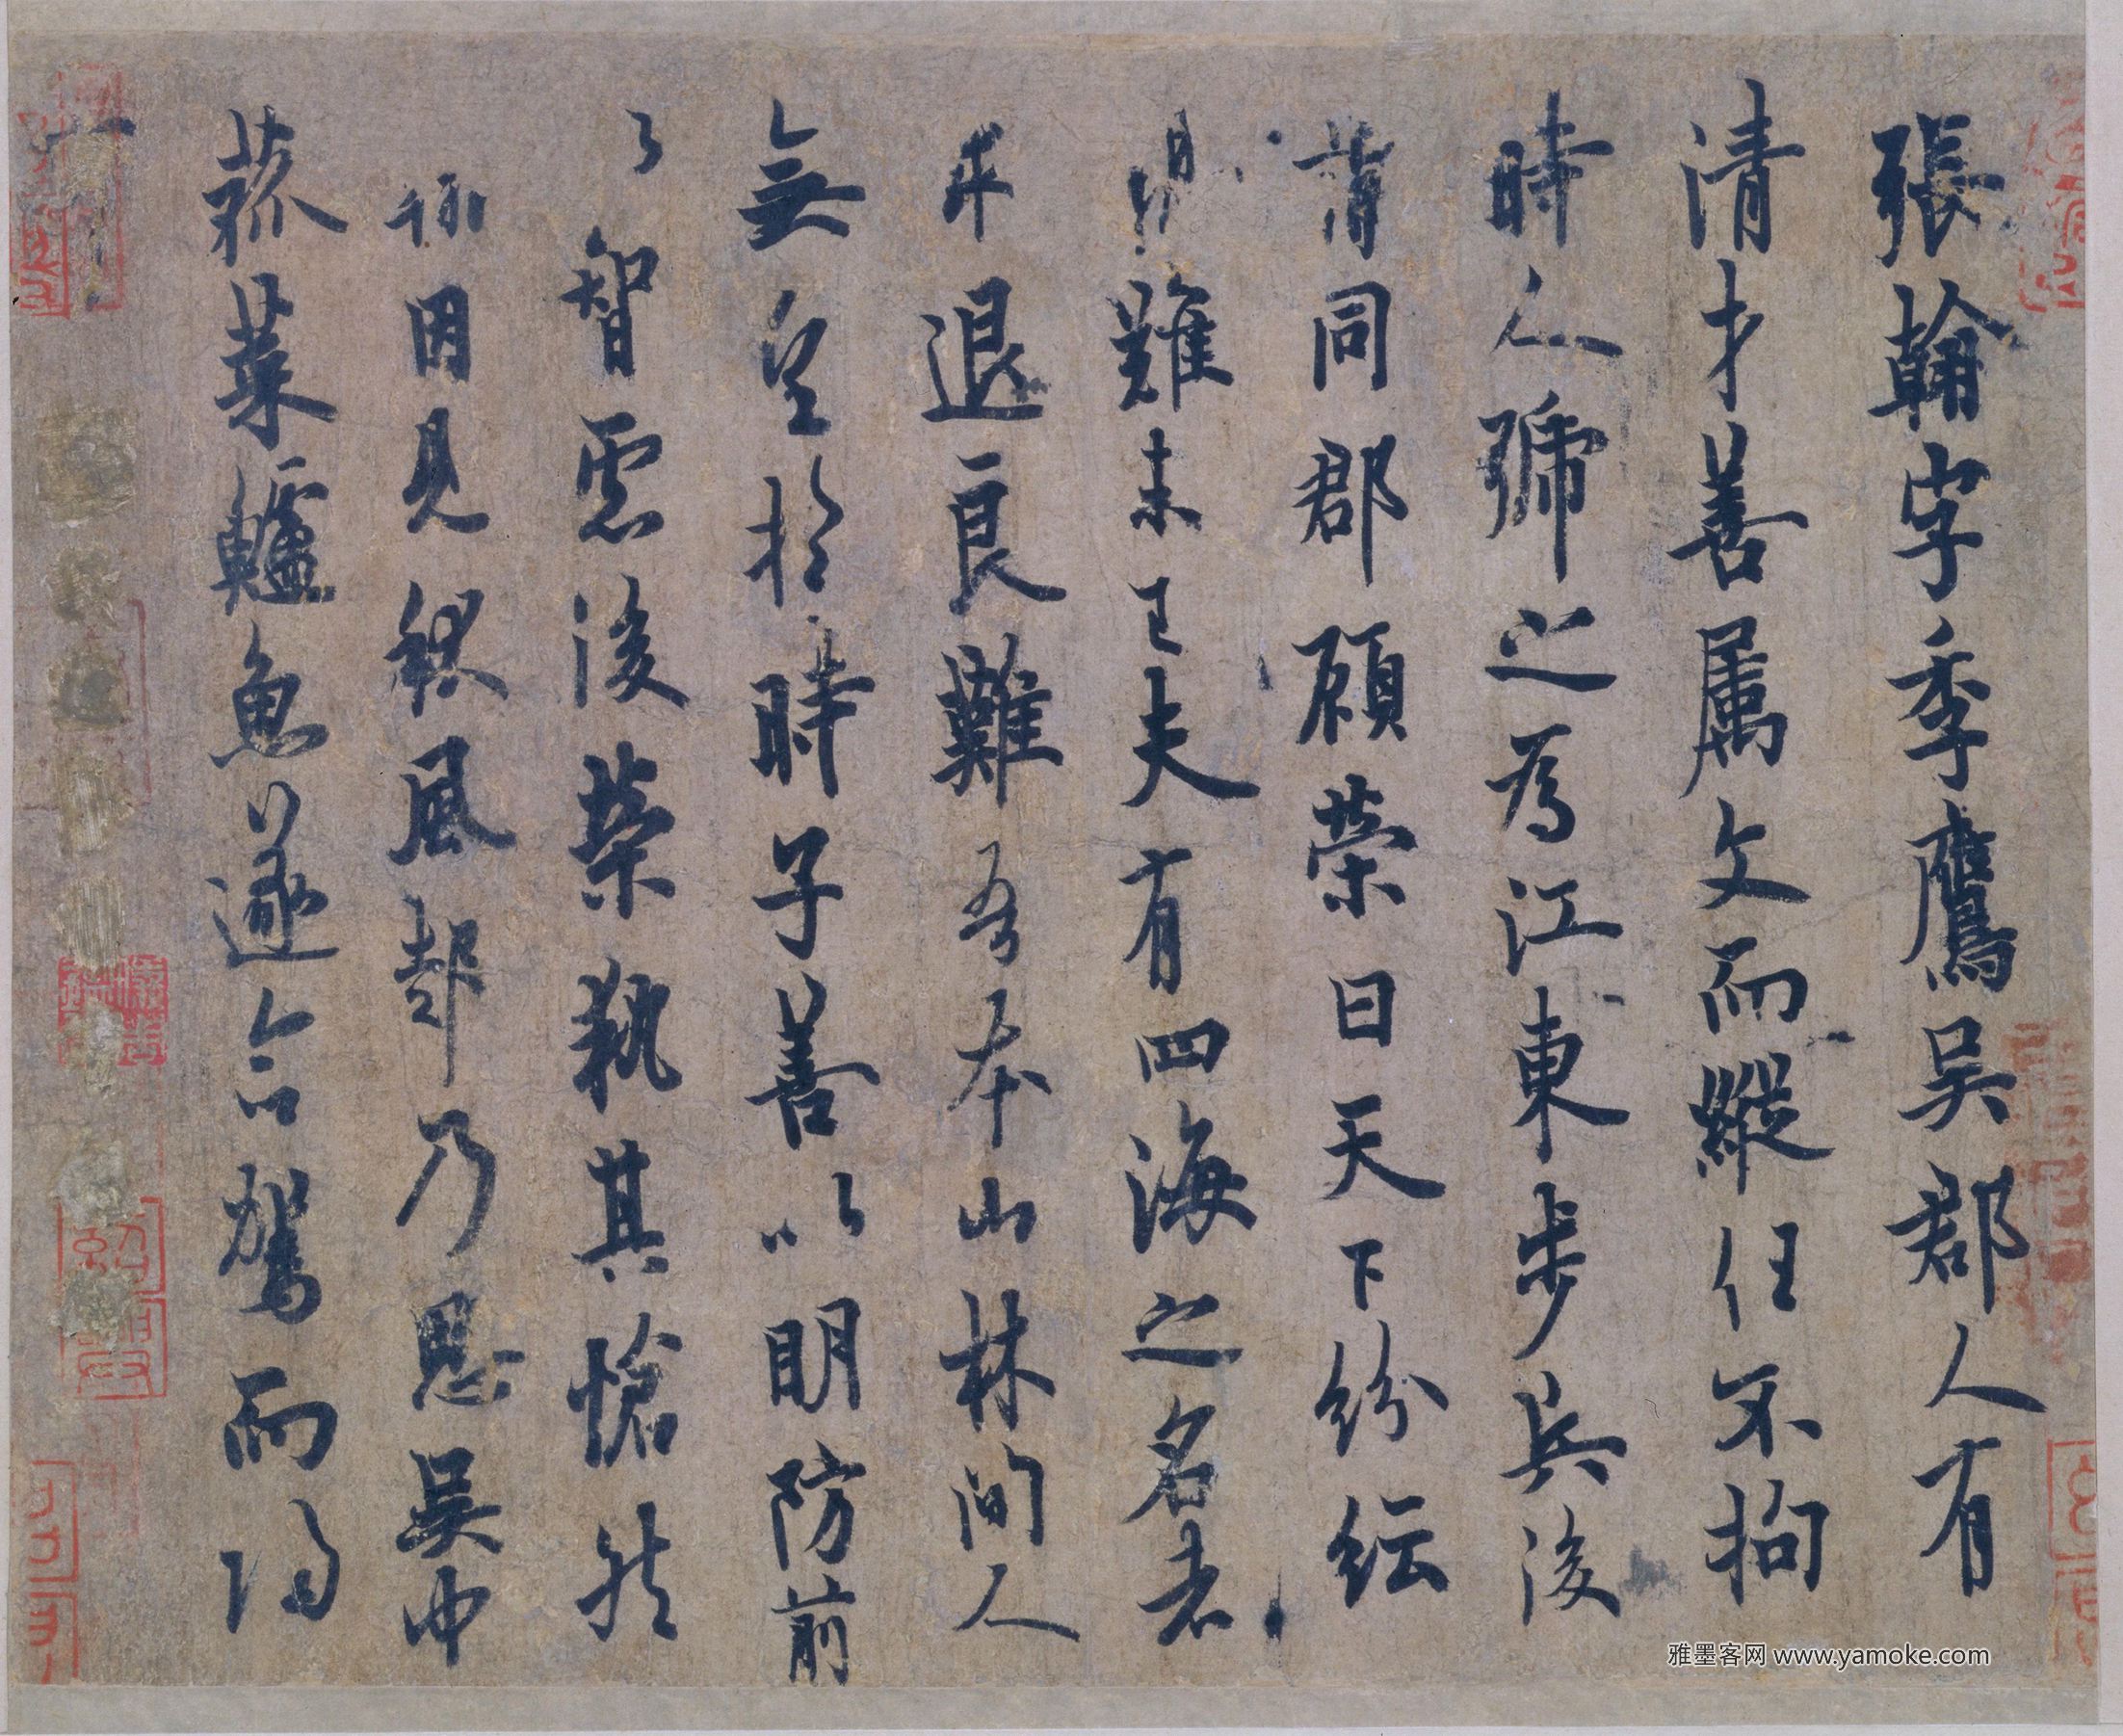 張翰字季鷹吴郡人有
清才善属文而縱任不拘
時人號之為江東步兵後
同郡顧榮曰天下紛紜
難未已夫有四海之名者
求退良難吾本山林間人
無望於時子善以明防前
以智慮後榮執其愴然
翰因見秋風起乃思吴中
菰菜鱸魚遂命駕而歸
雅墨客网 www.yamoke.com